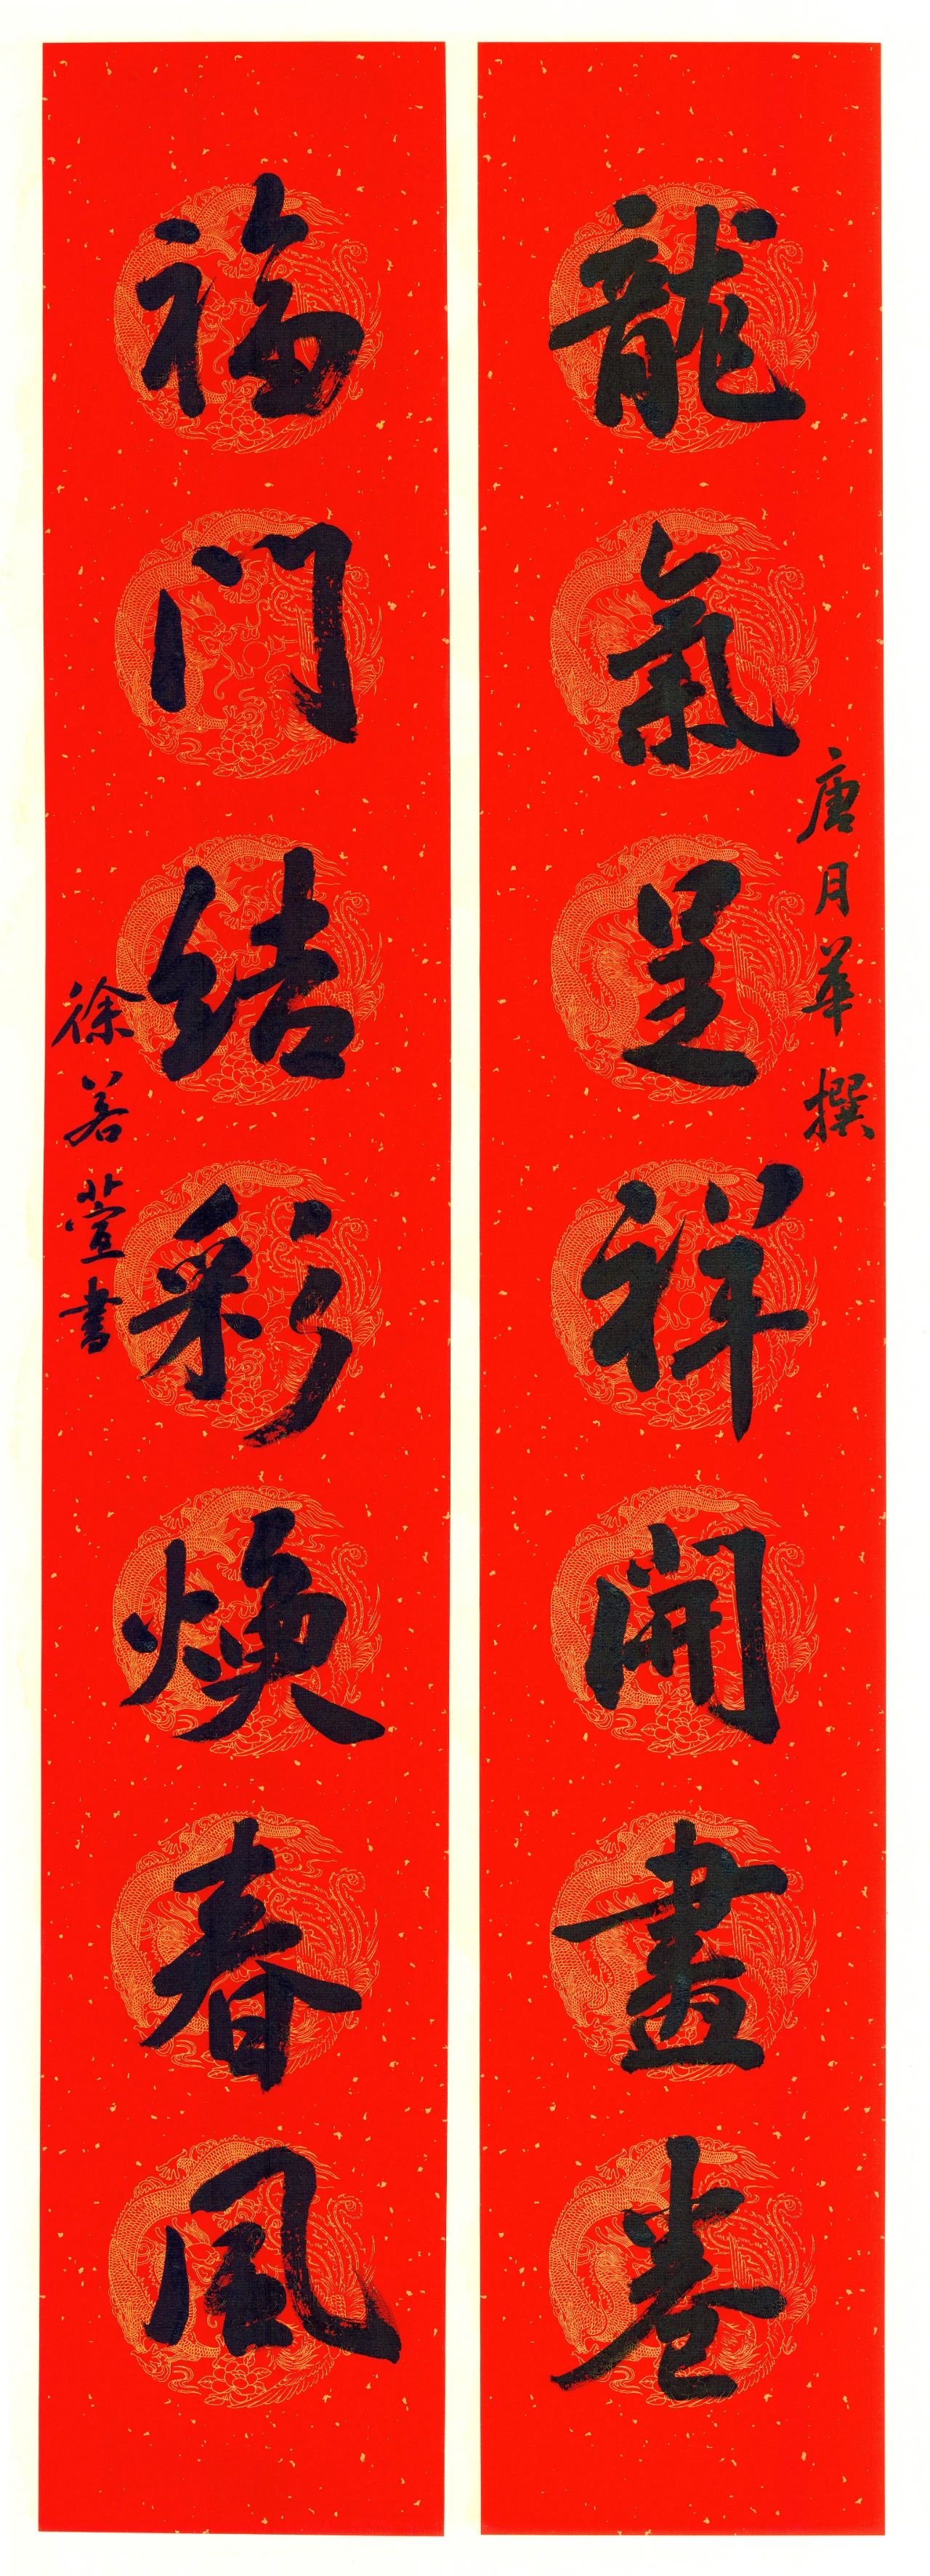 龍氣呈祥開畫卷
唐月華撰
福门结彩焕春风
徐若萱書